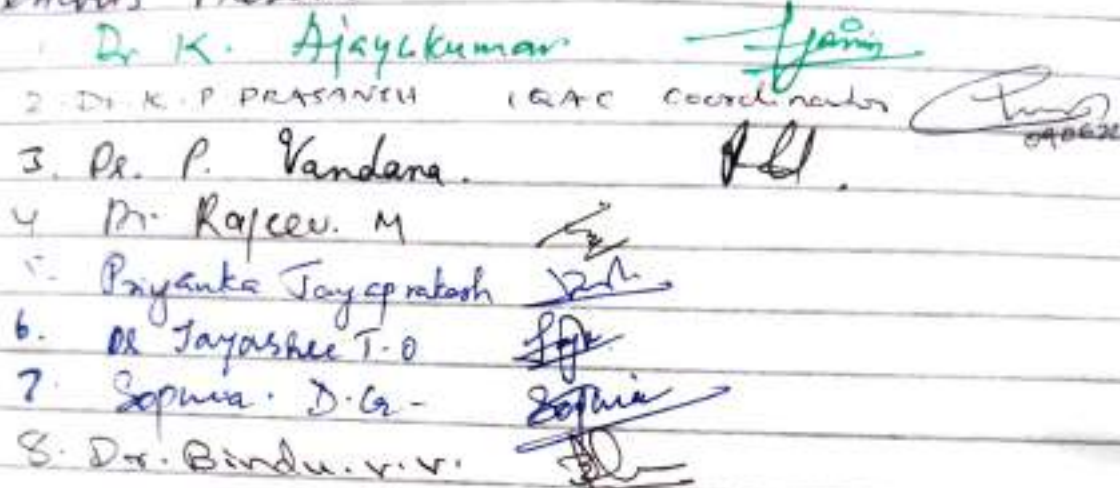 1. Dr K. Ajayakumar
2. Dr. K. P PRASANTH IQAC Coordinator
3. Dr. P. Vandana.
4 Dr. Rajeev. M
5. Priyanka Jayaprakash
6. Dr Jayashree T.O
7. Sophia. D.G- Sophia
8. Dr. Bindu. V. V.